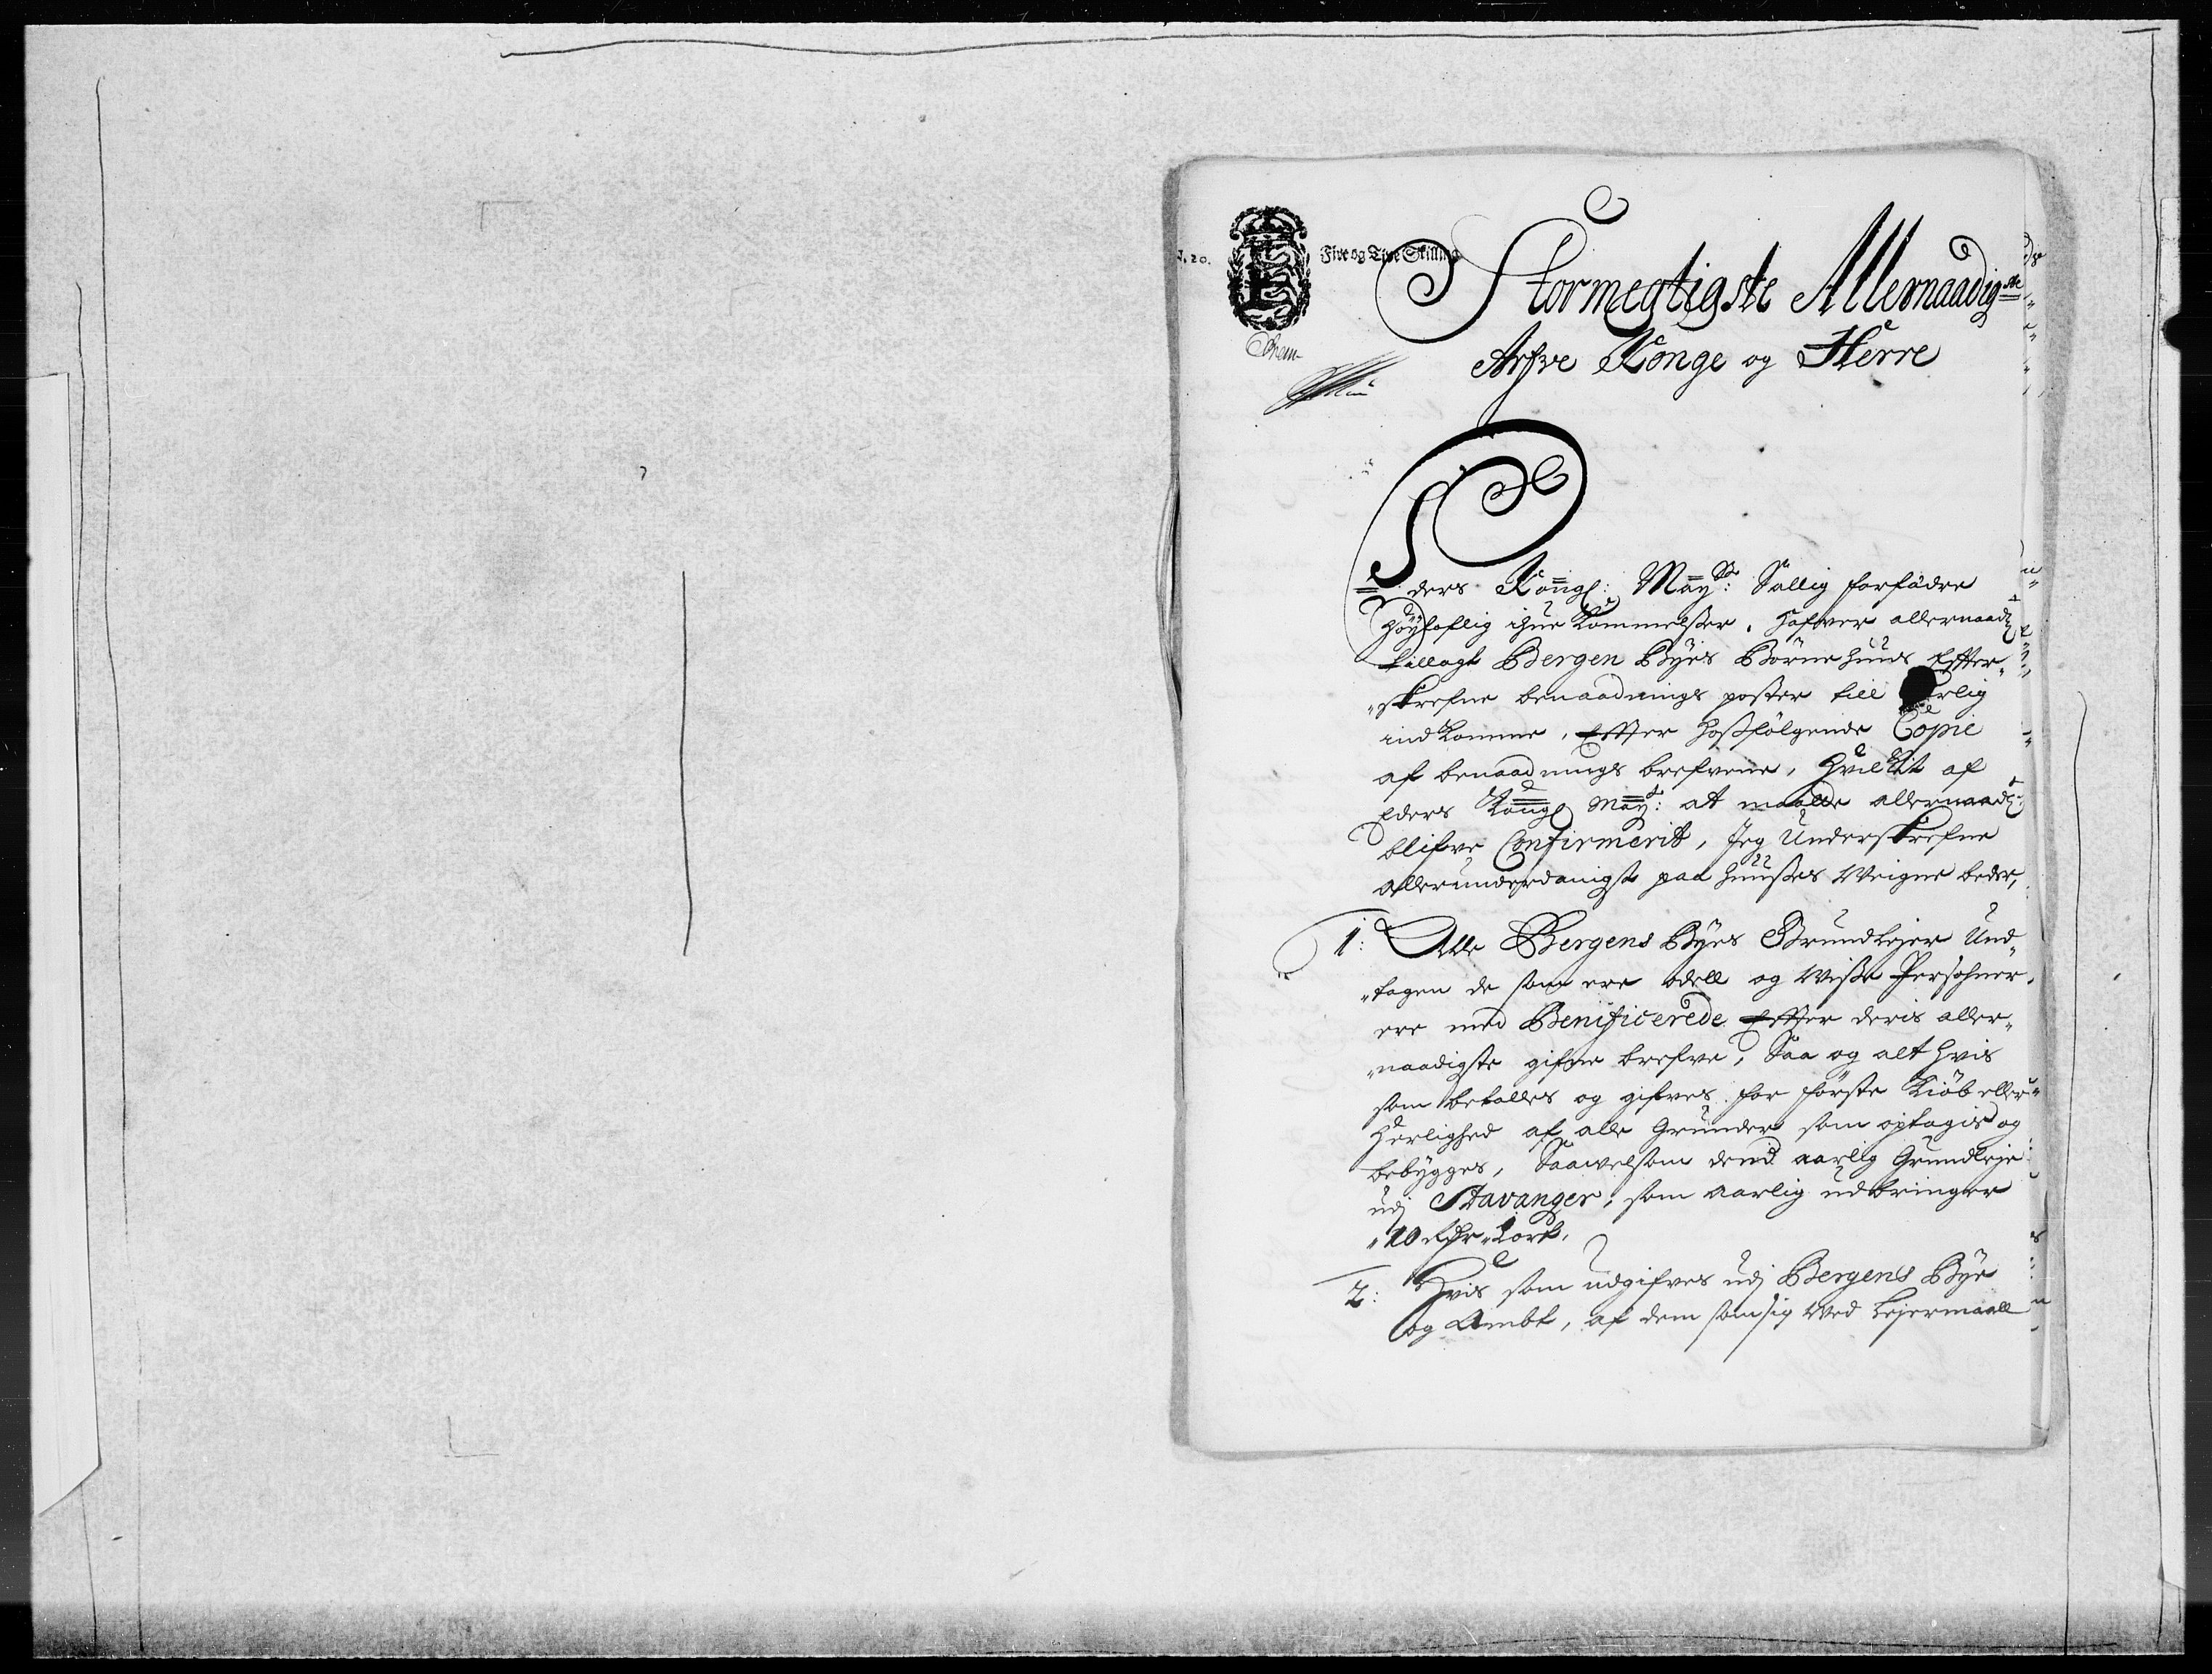 N. 20.
Fire og Tive Skilling
Stormegtigste Allernaadigste
Arfve Konge og Herre
Eders Kongl: Mayts: Sallig forfädre
Høyloflig ihue Kommelser, hafver allernaadt
tillagt Bergen Byes Börnehuus Effter„
„skrefne benaadnings poster till aarlig
indkomme, Effter hoßfölgende Copie
af benaadnings brefvene, hvilket af
Eders Kongl May: at maatte allernaadt
blifve Confirmerit, Jeg Underskrefne
allerunderdanigst paa huußes Weigne beder,
1: Alle Bergens Byes Grundlejer Und„
„tagen de som ere odell og Wiße Persohner
ere med Benificerede Effter deris aller„
„naadigste gifne brefve, Saa og alt hvis
som betalles og gifves for förste Kiöb eller
herlighed af alle Grunder som optagis og
bebygges, Saavelsom dend aarlig Grundleje
udj Stavanger, som aarlig udbringer
„10 Rdr„ 1 ort,
2: Hvis som udgifves udj Bergens Bye
og Ambt, af dem som sig Wed Lejermaall